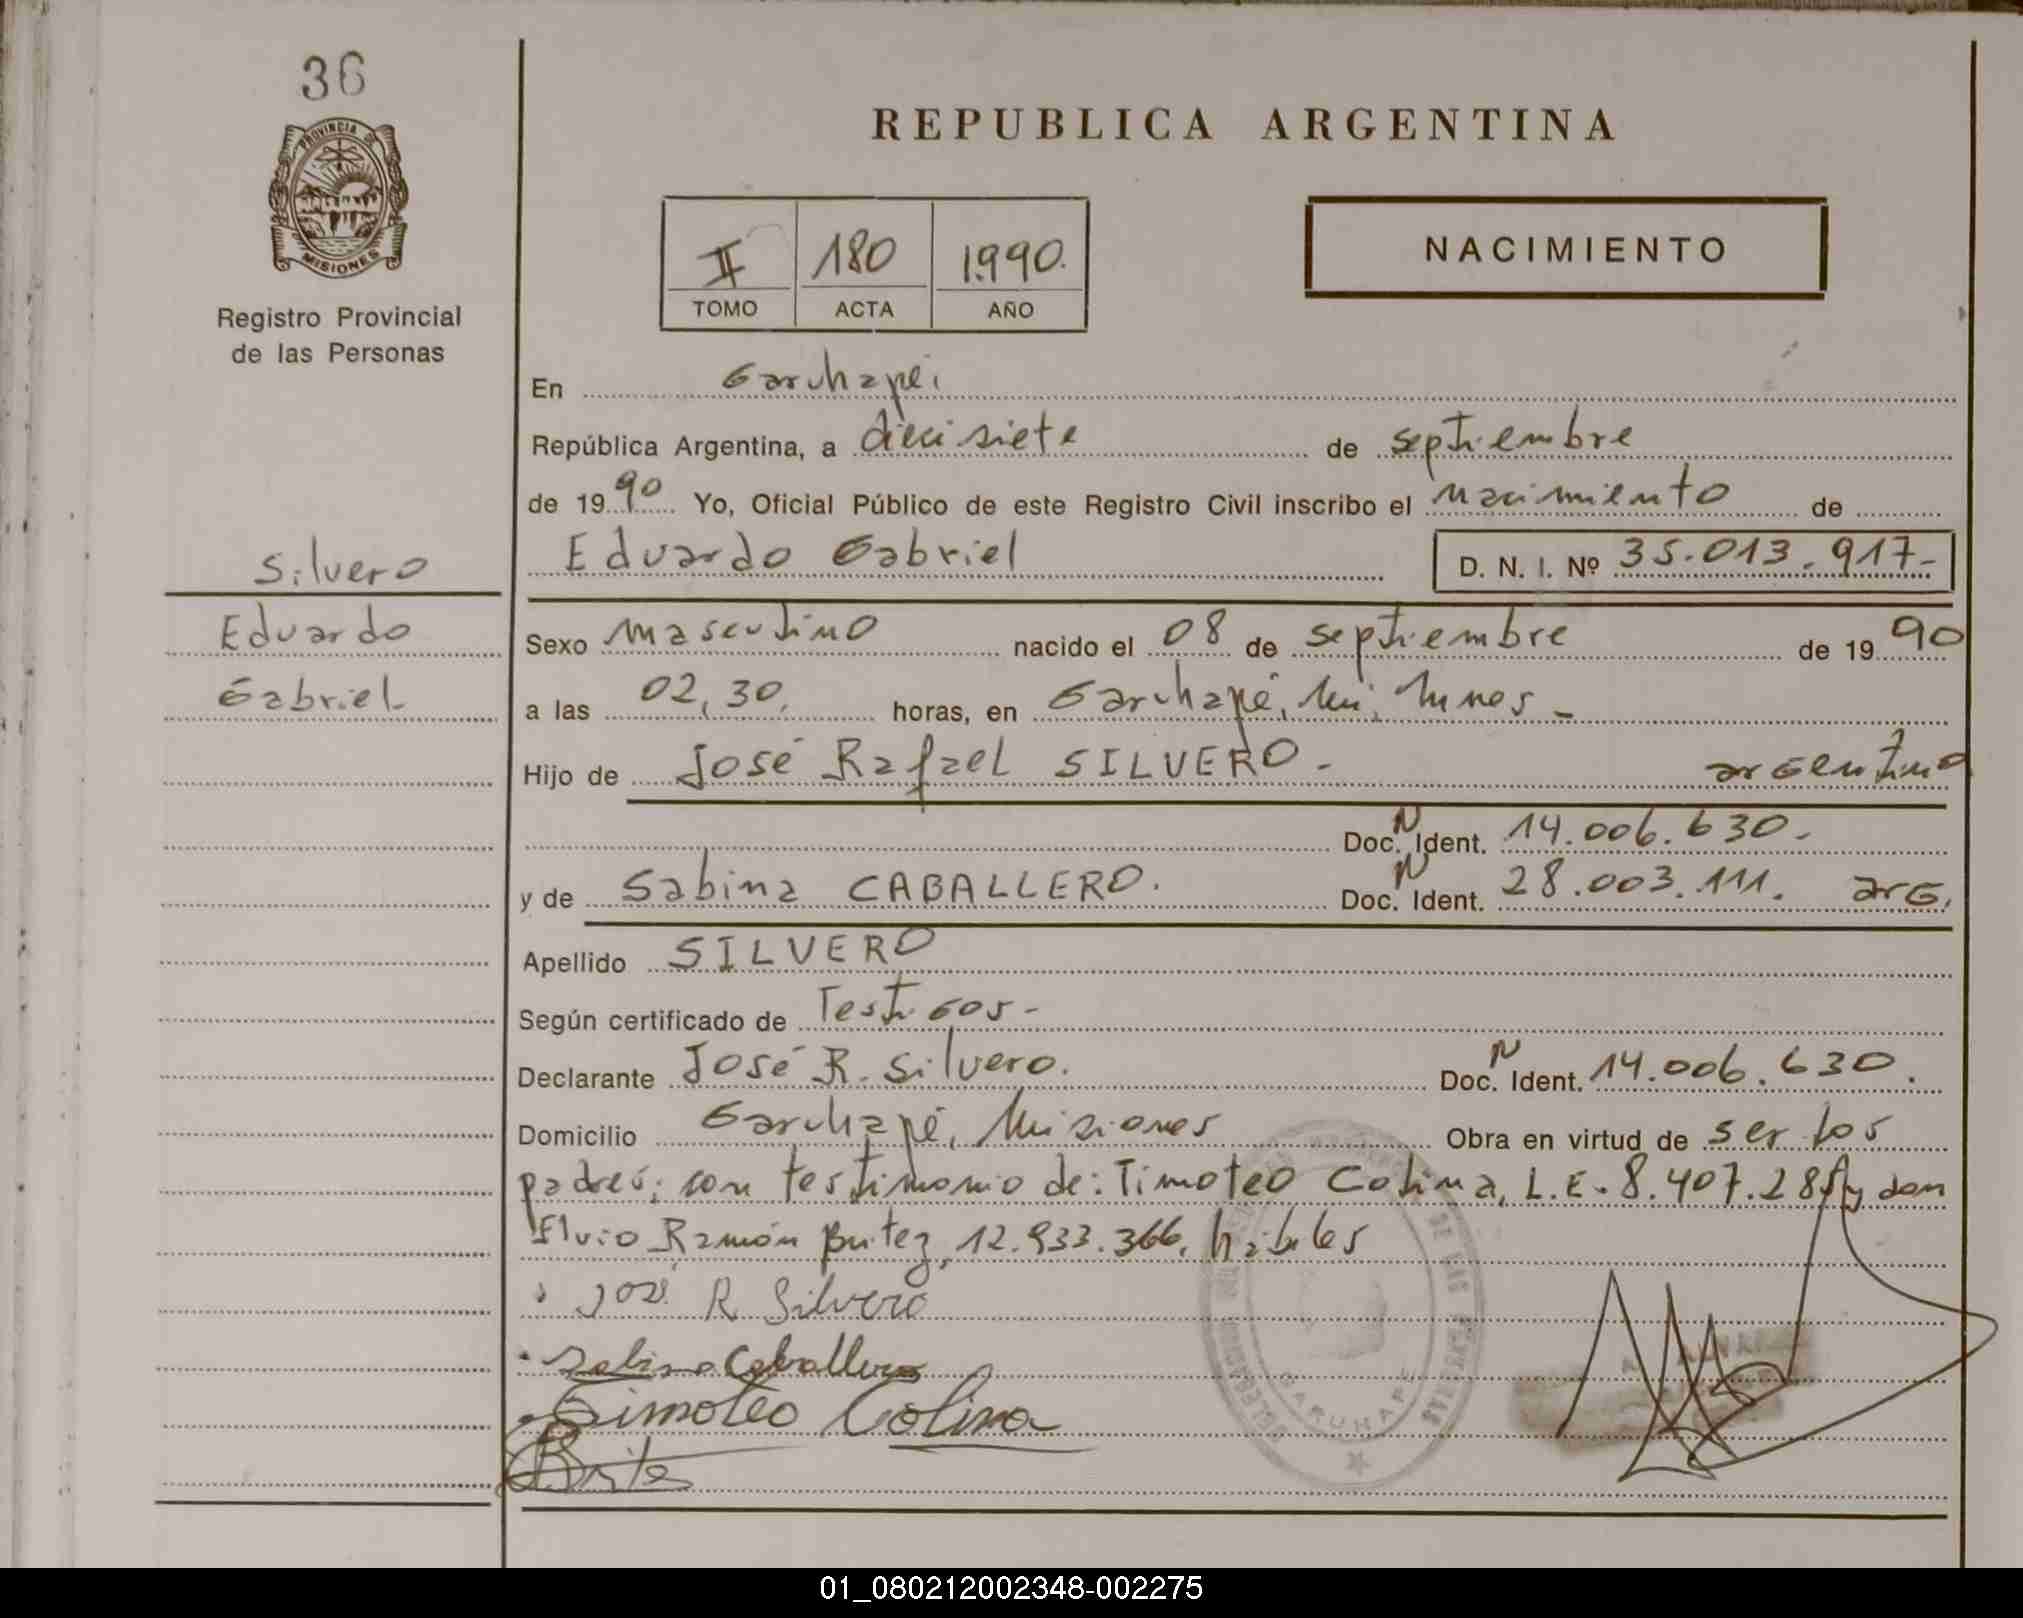 36
PROVINCIA DE
MISIONES
Registro Provincial
de las Personas
Silvero
Eduardo
Gabriel
REPUBLICA ARGENTINA
II 180 1990.
TOMO ACTA AÑO
NACIMIENTO
En Garuhapé
República Argentina, a diecisiete de septiembre
de 1990 Yo, Oficial Público de este Registro Civil inscribo el nacimiento de
Eduardo Gabriel D. N. I. Nº 35.013.917-
Sexo masculino nacido el 08 de septiembre de 1990
a las 02,30, horas, en Garuhapé, Misiones -
Hijo de José Rafael SILVERO - argentino
Doc. N Ident. 14.006.630.
y de Sabina CABALLERO. Doc. N Ident. 28.003.111. arg.
Apellido SILVERO
Según certificado de Testigos -
Declarante José R. Silvero. Doc. N Ident. 14.006.630.
Domicilio Garuhapé, Misiones Obra en virtud de ser los
padres; con testimonio de: Timoteo Colina, L.E. 8.407.28 y don
Ramón Britez, 12.933.366, hábiles
José R Silvero
Sabina Caballero
Timoteo Colina
Brite
DE LAS PERSONAS
GARUHAPE
01_080212002348-002275